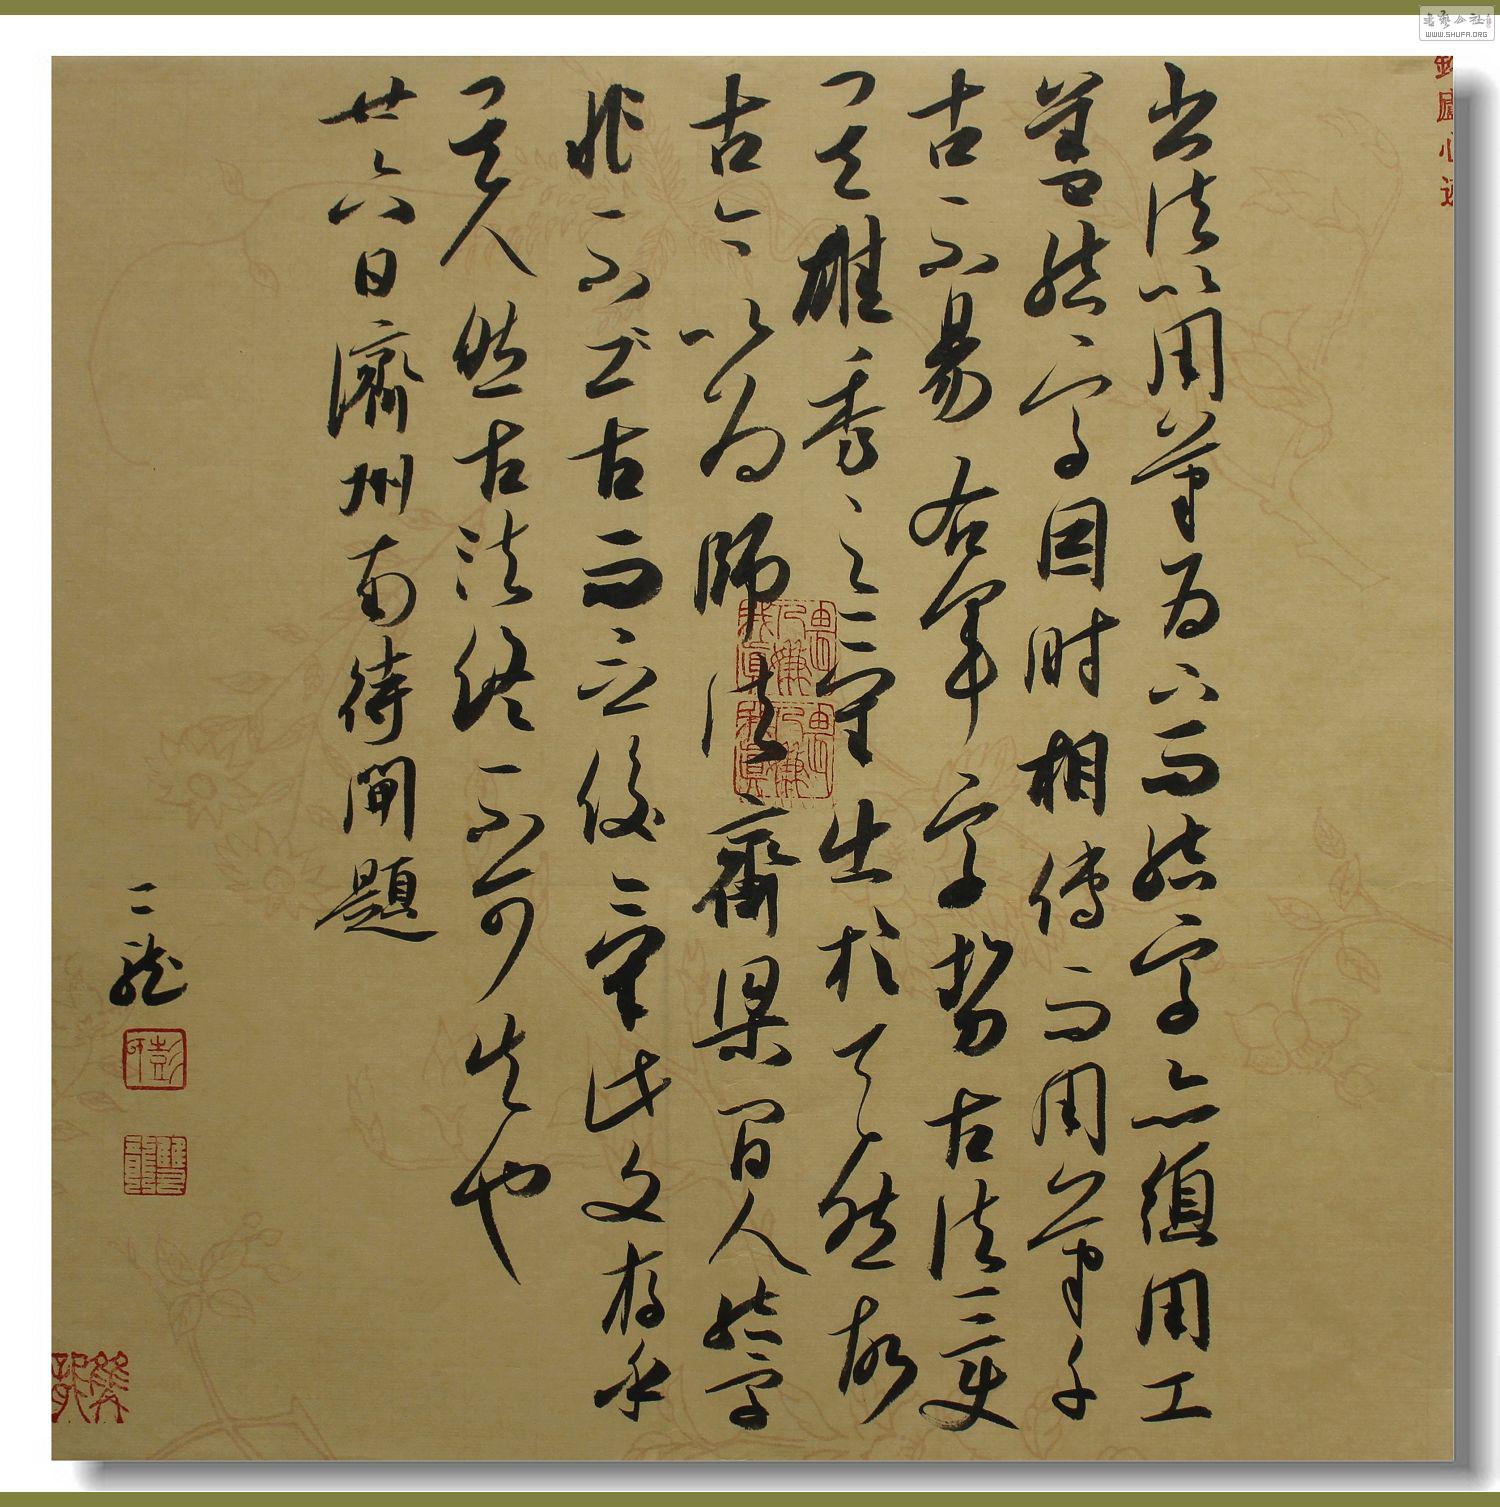 书法以用笔为上而结字亦须用工
盖结字因时相传而用笔千
古不易右军字势古法一变
其雄秀之气出于天然故
古今以为师法齐梁间人结字
非不古而乏俊气此又存乎
其人然古法终不可失也
廿六日济州南待闸题
二龙
WWW.SHUFA.ORG